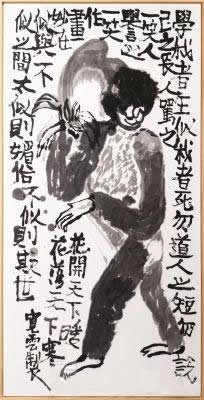 學我者生似我者死勿道人之短切說
己之長人罵之
一笑人
譽之
一笑
作
畫
妙在
似與不
似之間太似則媚俗不似則欺世
花開天下暖
花落天下寒